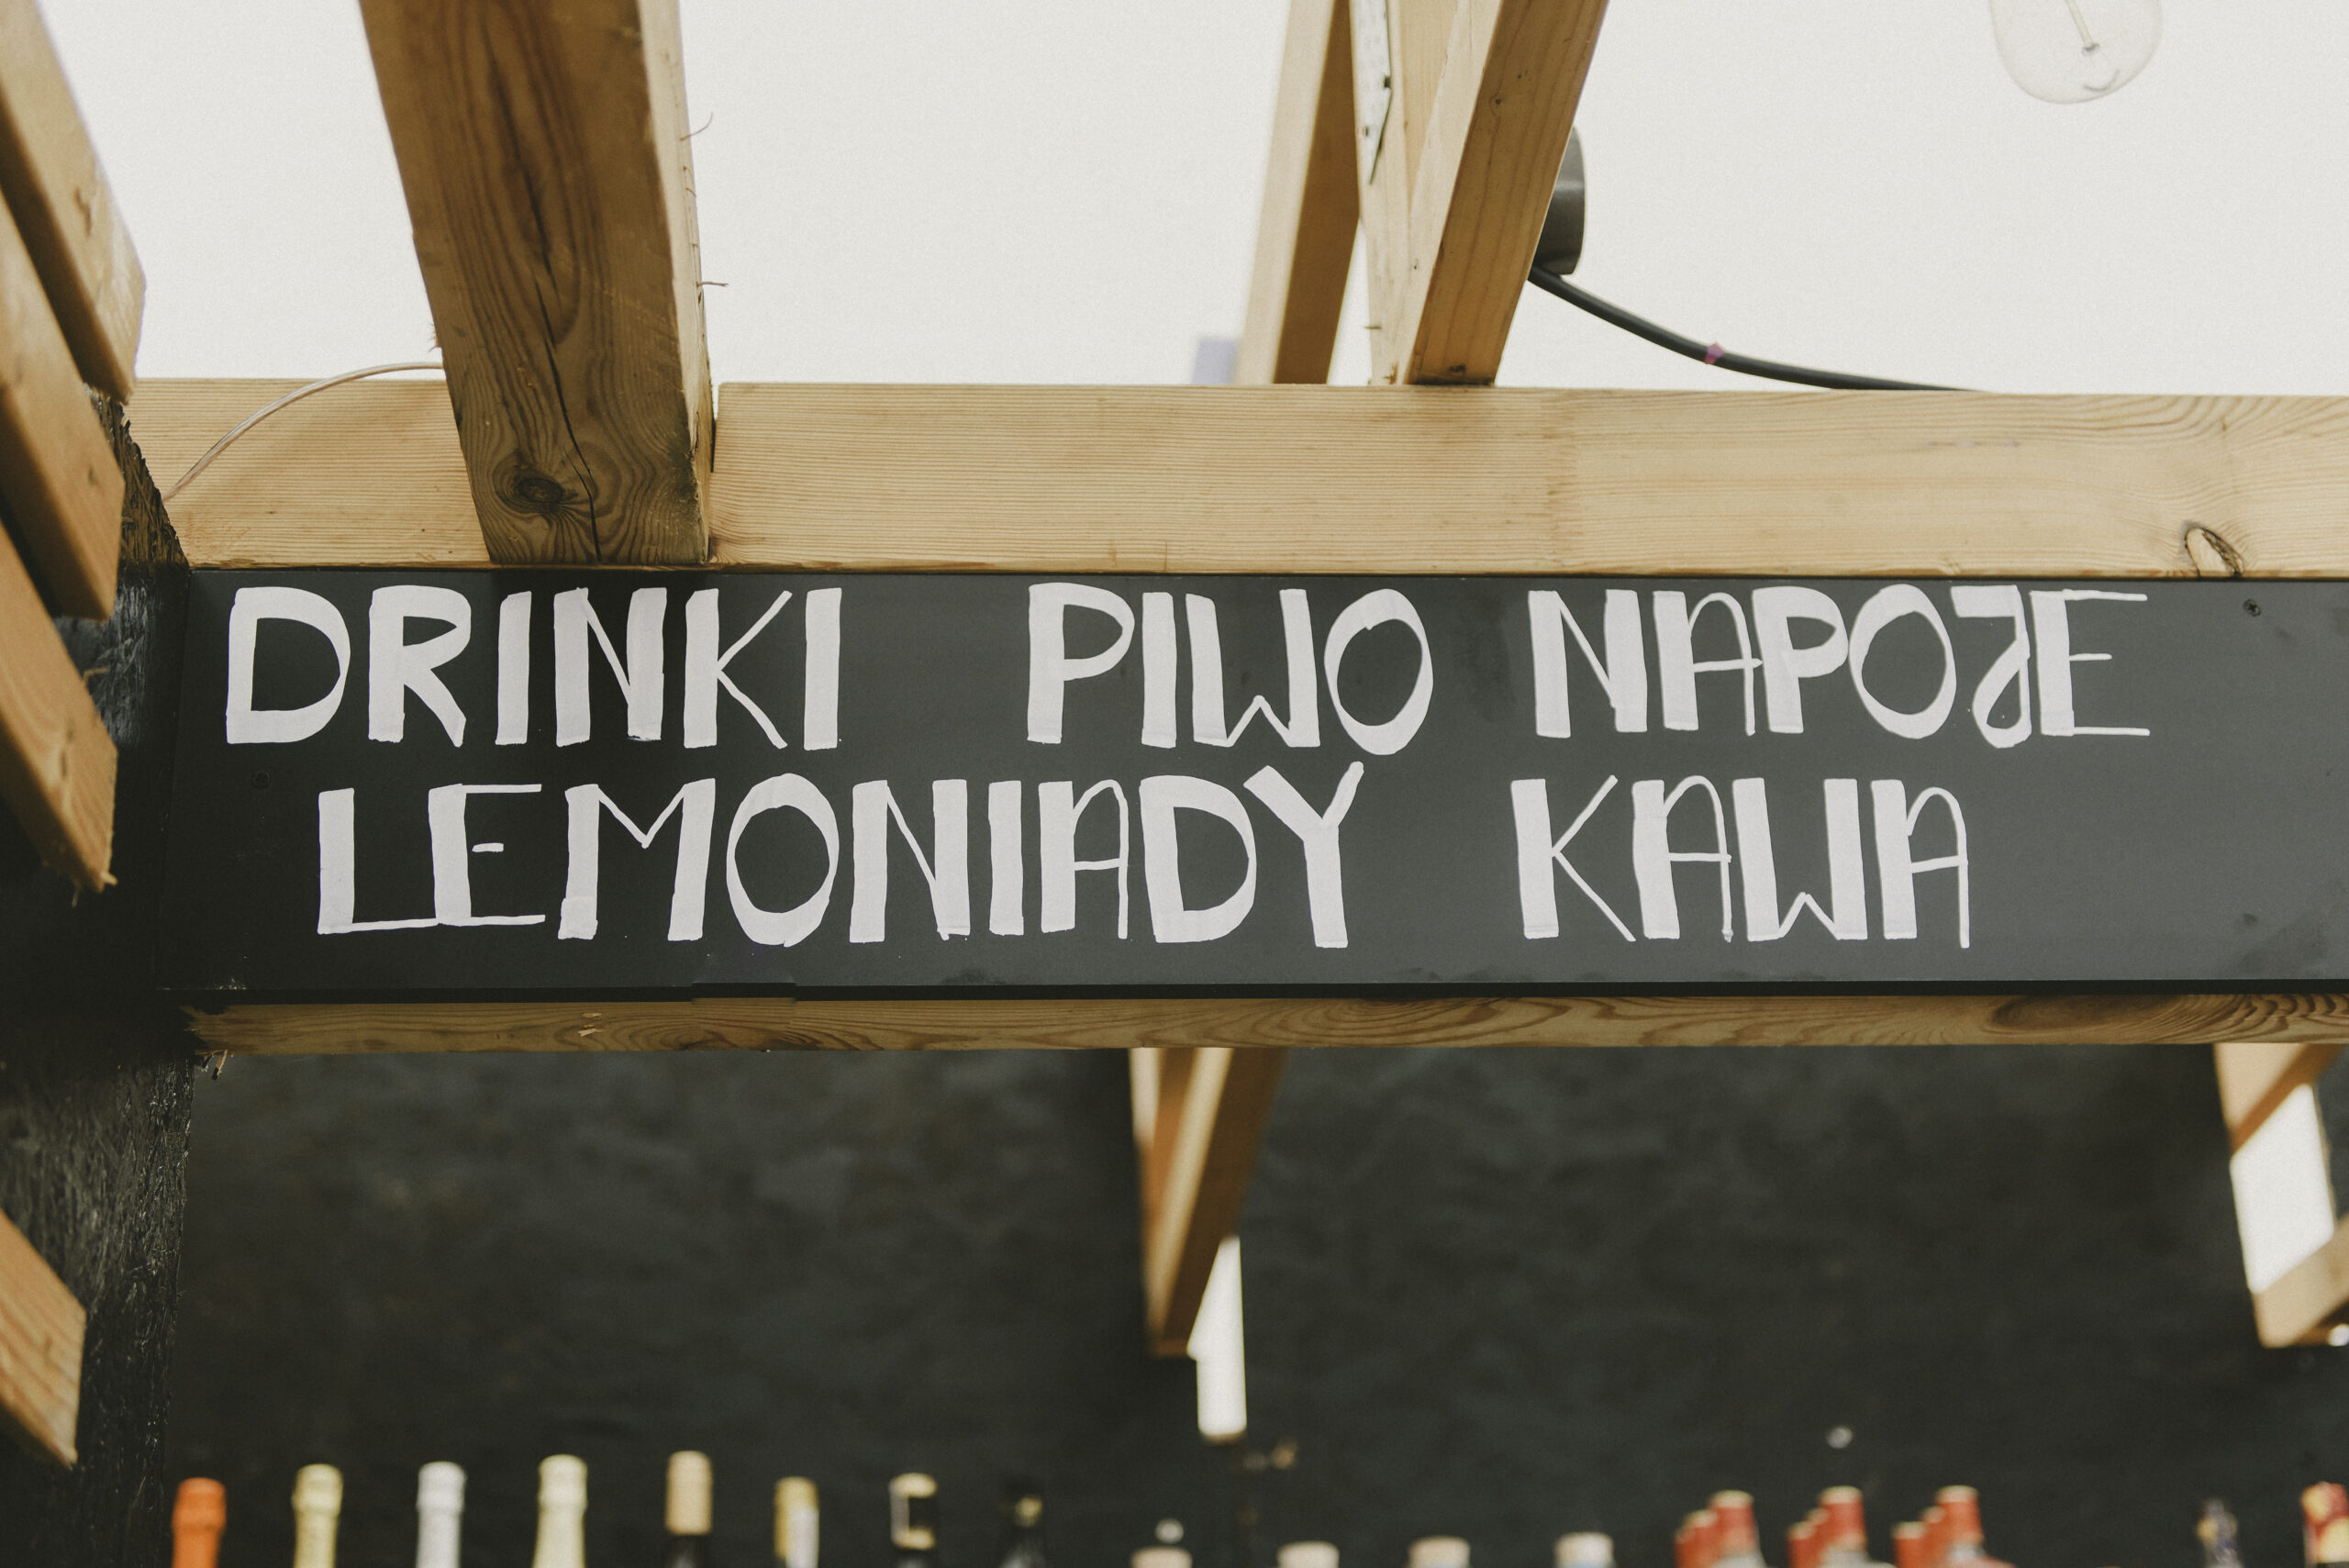 DRINKI PIWO NAPOJE
LEMONIADY KAWA